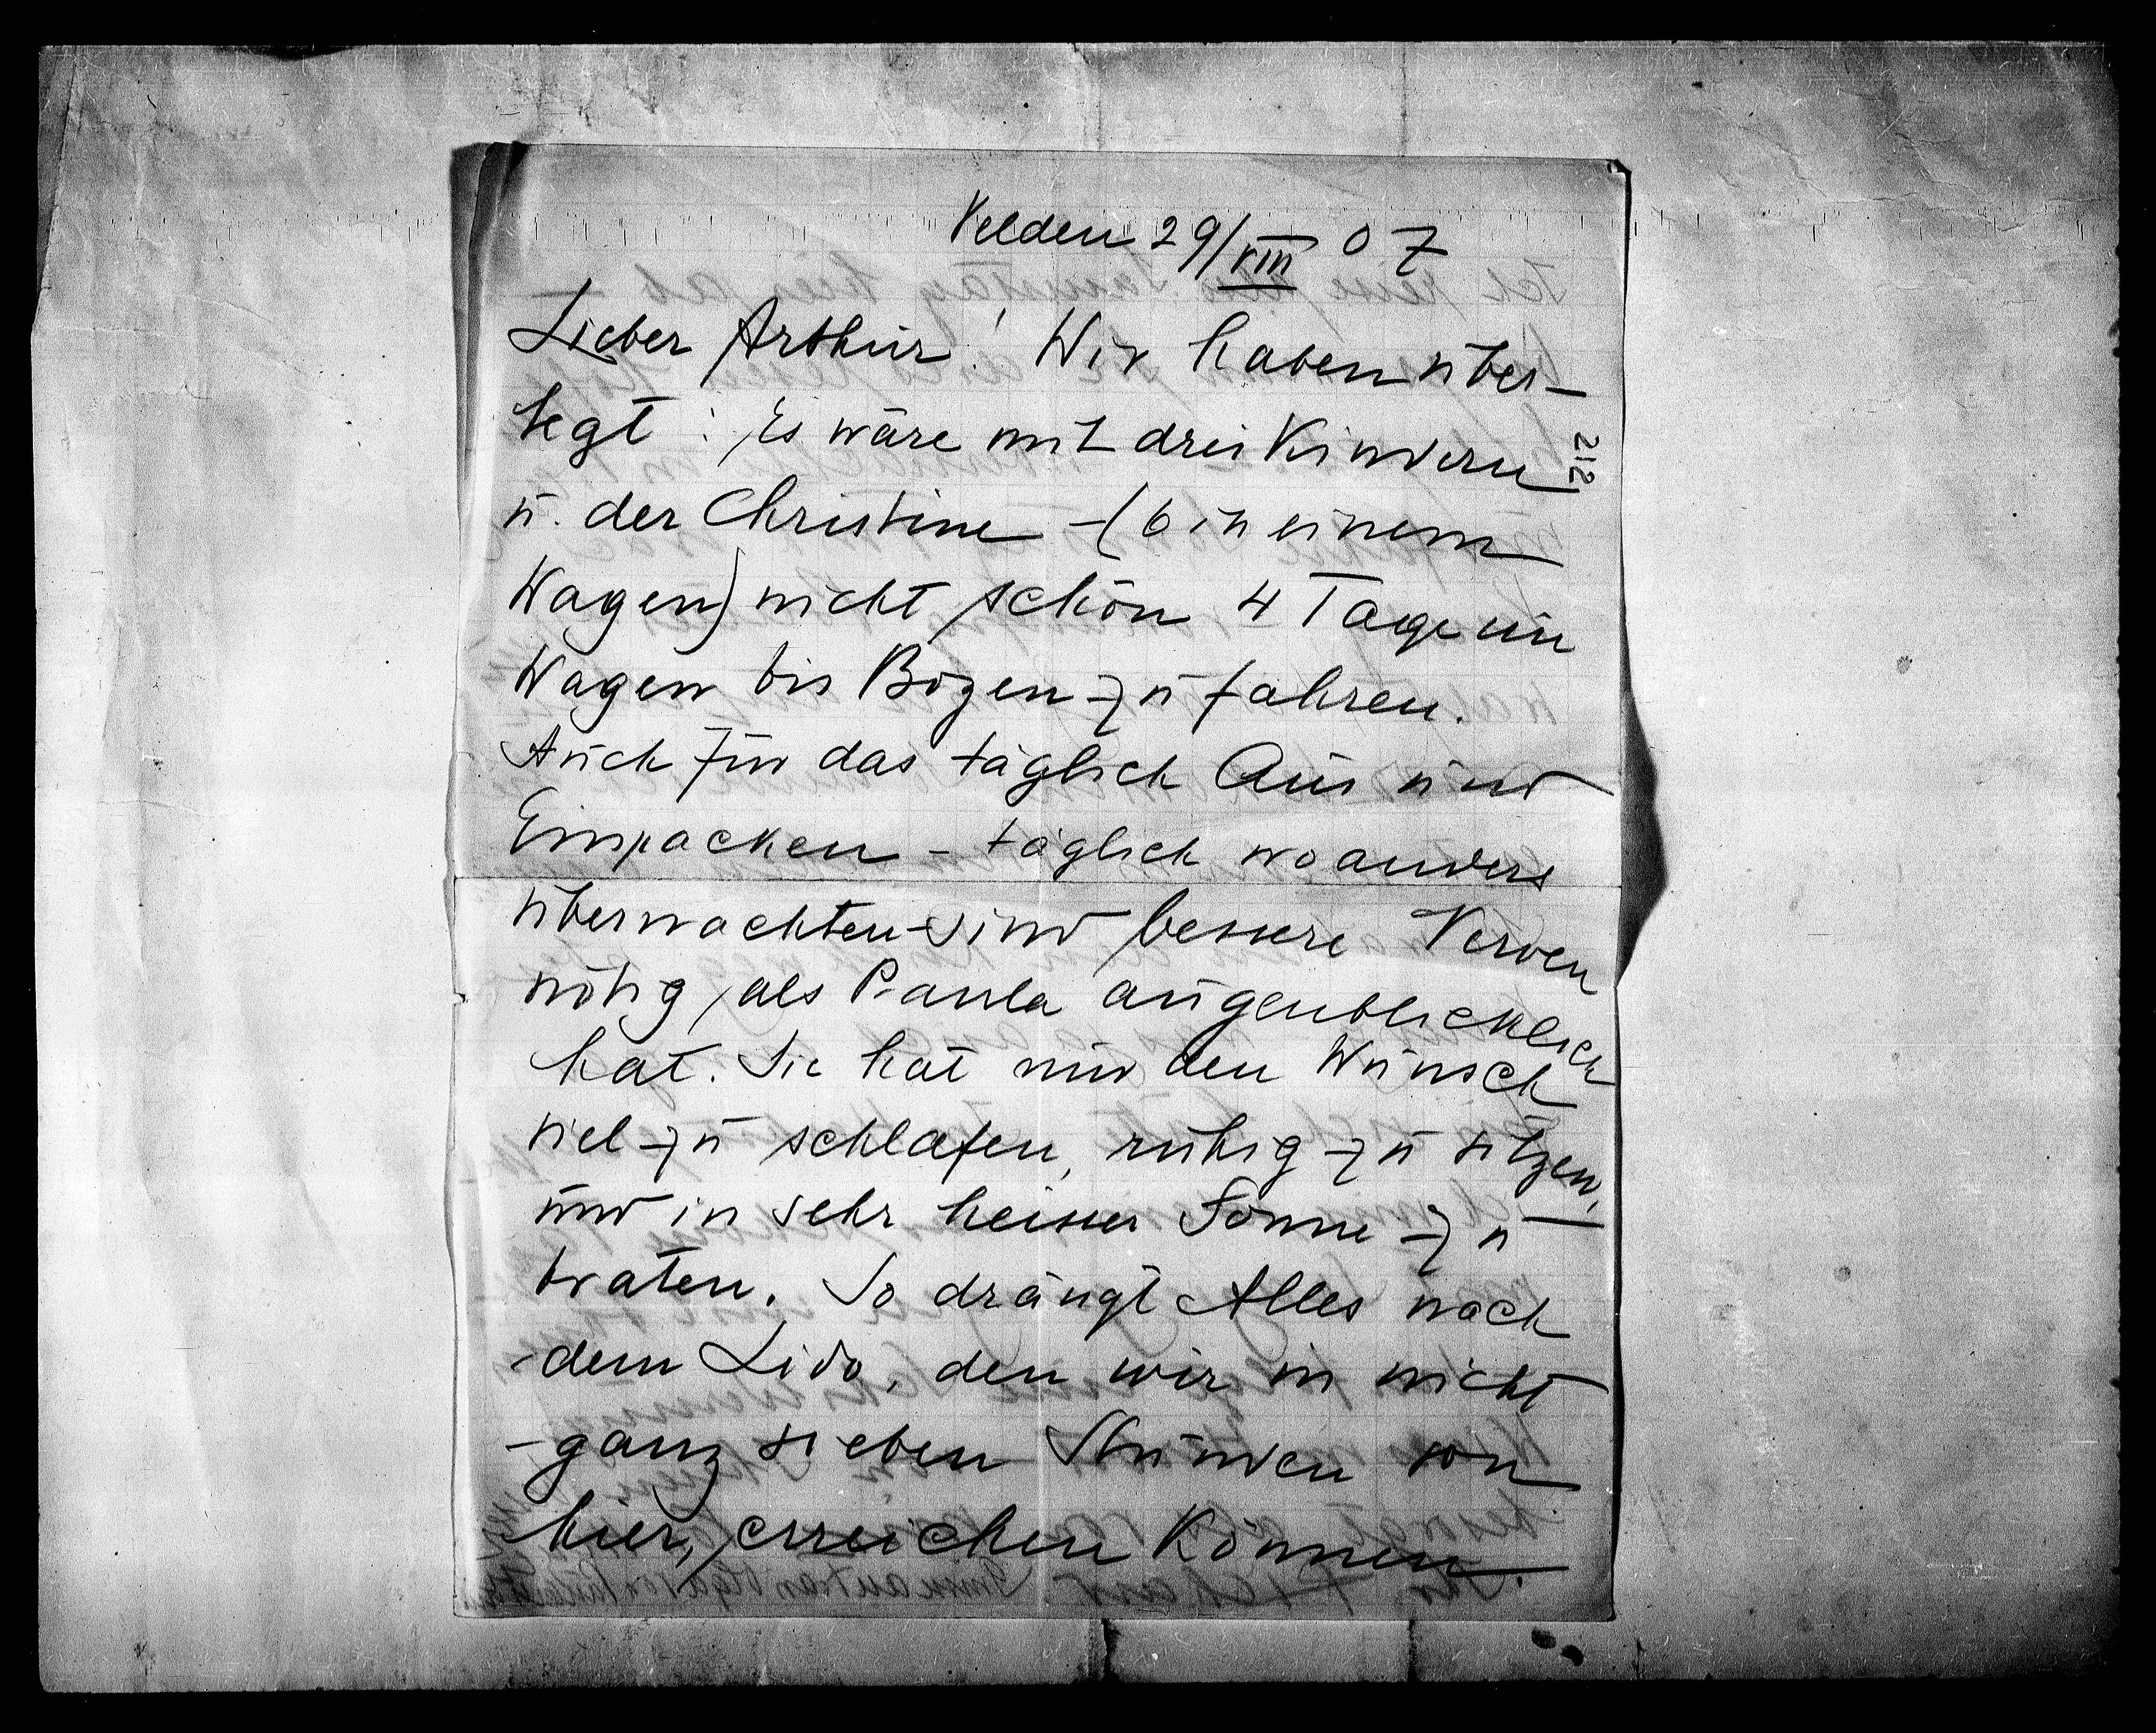 Velden 29/VIII 07
Lieber Arthur! Wir haben über-
legt: Es wäre mit drei Kindern
212
u. der Christine – (6 in einem
Wagen) nicht schön 4 Tage im
Wagen bis Bozen zu fahren.
Auch für das täglich Aus und
Einpacken – täglich wo anders
übernachten – sind bessere Nerven
nötig, als Paula augenblicklich
hat. Sie hat nur den Wunsch
viel zu schlafen, ruhig zu sitzen,
und in sehr heisser Sonne zu
braten. So drängt Alles nach
dem Lido, den wir in nicht
ganz sieben Stunden von
hier, erreichen können.